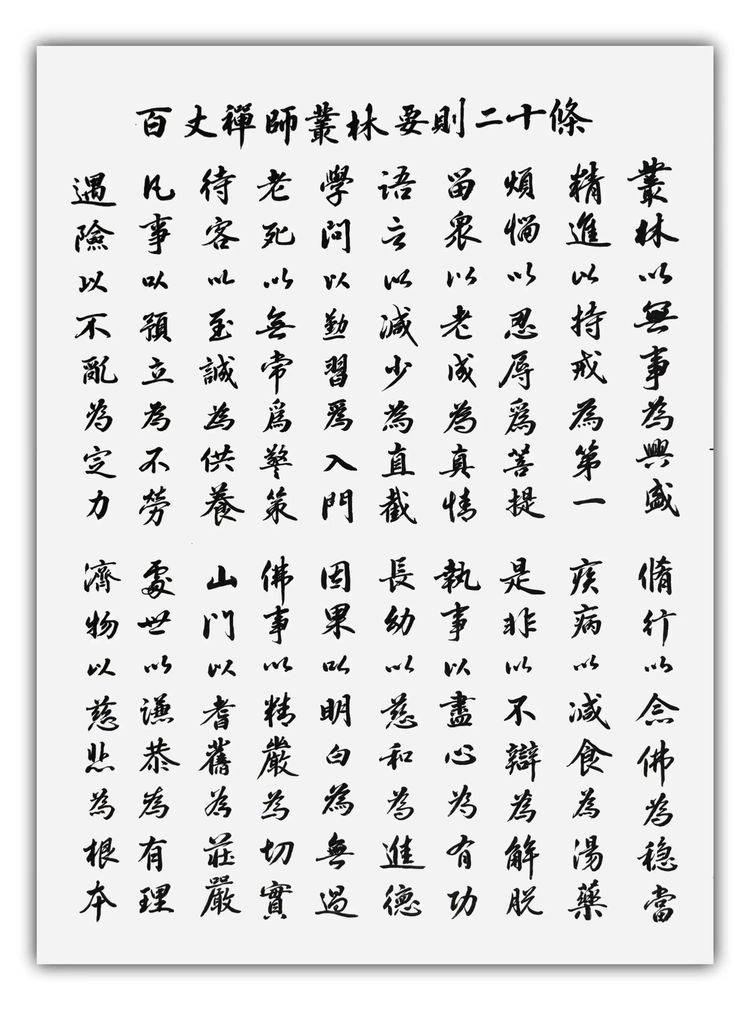 百丈禪師叢林要則二十條
叢林以無事為興盛 脩行以念佛為穩當
精進以持戒為第一 疾病以減食為湯藥
煩惱以忍辱爲菩提 是非以不辯為解脫
留眾以老成為真情 執事以盡心為有功
語言以減少為直截 長幼以慈和為進德
學問以勤習爲入門 因果以明白為無過
老死以無常爲警策 佛事以精嚴為切實
待客以至誠為供養 山門以耆舊為莊嚴
凡事以預立為不勞 處世以謙恭為有理
遇險以不亂為定力 濟物以慈悲為根本